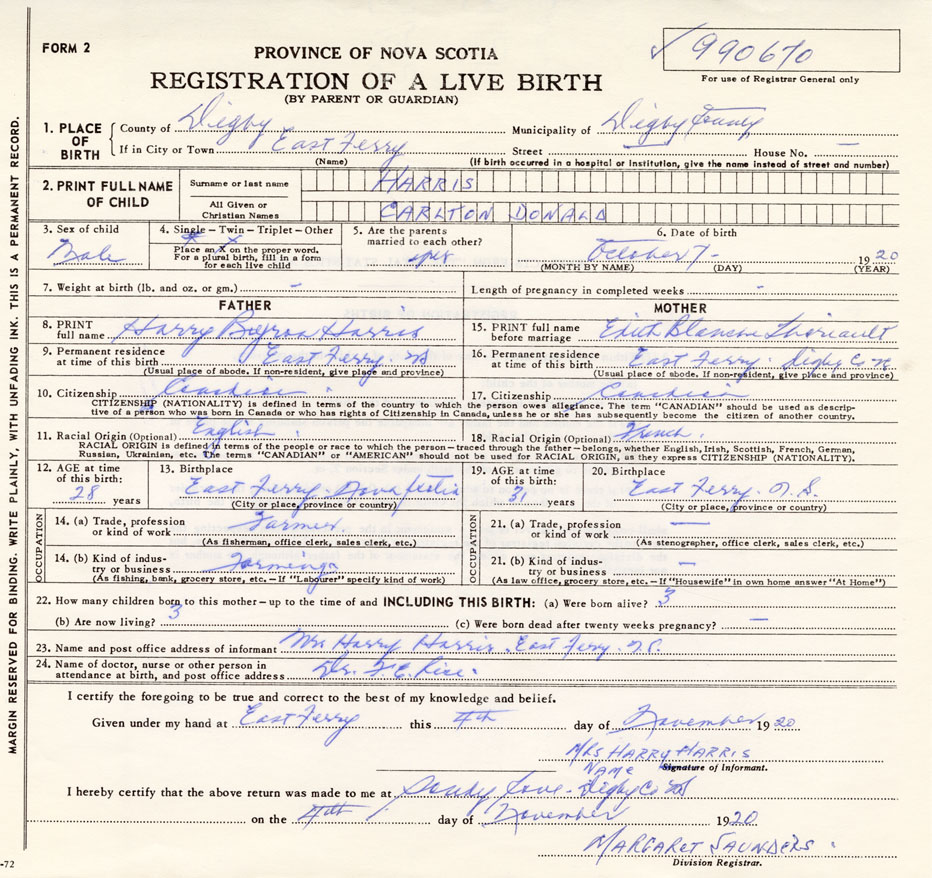 FORM 2
PROVINCE OF NOVA SCOTIA
✓ 990670
REGISTRATION OF A LIVE BIRTH
For use of Registrar General only
(BY PARENT OR GUARDIAN)
1. PLACE OF BIRTH { County of Digby Municipality of Digby County
If in City or Town East Ferry Street — House No. —
(Name) (If birth occurred in a hospital or institution, give the name instead of street and number)
2. PRINT FULL NAME OF CHILD Surname or last name HARRIS
All Given or Christian Names CARLTON DONALD
3. Sex of child Male
4. Single – Twin – Triplet – Other
Place an X on the proper word.
For a plural birth, fill in a form
for each live child
5. Are the parents
married to each other?
yes
6. Date of birth
October 7 – 1920
(MONTH BY NAME) (DAY) (YEAR)
7. Weight at birth (lb. and oz. or gm.) – Length of pregnancy in completed weeks. –
FATHER MOTHER
8. PRINT full name Harry Byron Harris
15. PRINT full name before marriage Edith Blanche Theriault
9. Permanent residence at time of this birth East Ferry. NS
(Usual place of abode. If non-resident, give place and province)
16. Permanent residence at time of this birth East Ferry. Digby Co NS
(Usual place of abode. If non-resident, give place and province)
10. Citizenship Canadian 17. Citizenship Canadian
CITIZENSHIP (NATIONALITY) is defined in terms of the country to which the person owes allegiance. The term "CANADIAN" should be used as descrip-
tive of a person who was born in Canada or who has rights of Citizenship in Canada, unless he or she has subsequently become the citizen of another country.
11. Racial Origin (Optional) English 18. Racial Origin (Optional) French
RACIAL ORIGIN is defined in terms of the people or race to which the person – traced through the father – belongs, whether English, Irish, Scottish, French, German,
Russian, Ukrainian, etc. The terms "CANADIAN" or "AMERICAN" should not be used for RACIAL ORIGIN, as they express CITIZENSHIP (NATIONALITY).
12. AGE at time of this birth: 28 years
13. Birthplace East Ferry Nova Scotia
(City or place, province or country)
19. AGE at time of this birth: 31 years
20. Birthplace East Ferry. N.S.
(City or place, province or country)
OCCUPATION
14. (a) Trade, profession or kind of work Farmer
(As fisherman, office clerk, sales clerk, etc.)
14. (b) Kind of indus-
try or business Farming
(As fishing, bank, grocery store, etc. – If "Labourer" specify kind of work)
OCCUPATION
21. (a) Trade, profession or kind of work —
(As stenographer, office clerk, sales clerk, etc.)
21. (b) Kind of indus-
try or business —
(As law office, grocery store, etc. – If "Housewife" in own home answer "At Home")
22. How many children born to this mother – up to the time of and INCLUDING THIS BIRTH: (a) Were born alive? 3
(b) Are now living? 3 (c) Were born dead after twenty weeks pregnancy? —
23. Name and post office address of informant Mrs Harry Harris, East Ferry. N.S.
24. Name of doctor, nurse or other person in
attendance at birth, and post office address Dr. F E Rice.
I certify the foregoing to be true and correct to the best of my knowledge and belief.
Given under my hand at East Ferry this 4th day of November 1920
MRS HARRY HARRIS
NAME Signature of Informant.
I hereby certify that the above return was made to me at Sandy Cove - Digby Co NS
on the 4th day of November 1920
MARGARET SAUNDERS.
Division Registrar.
-72
MARGIN RESERVED FOR BINDING. WRITE PLAINLY, WITH UNFADING INK. THIS IS A PERMANENT RECORD.